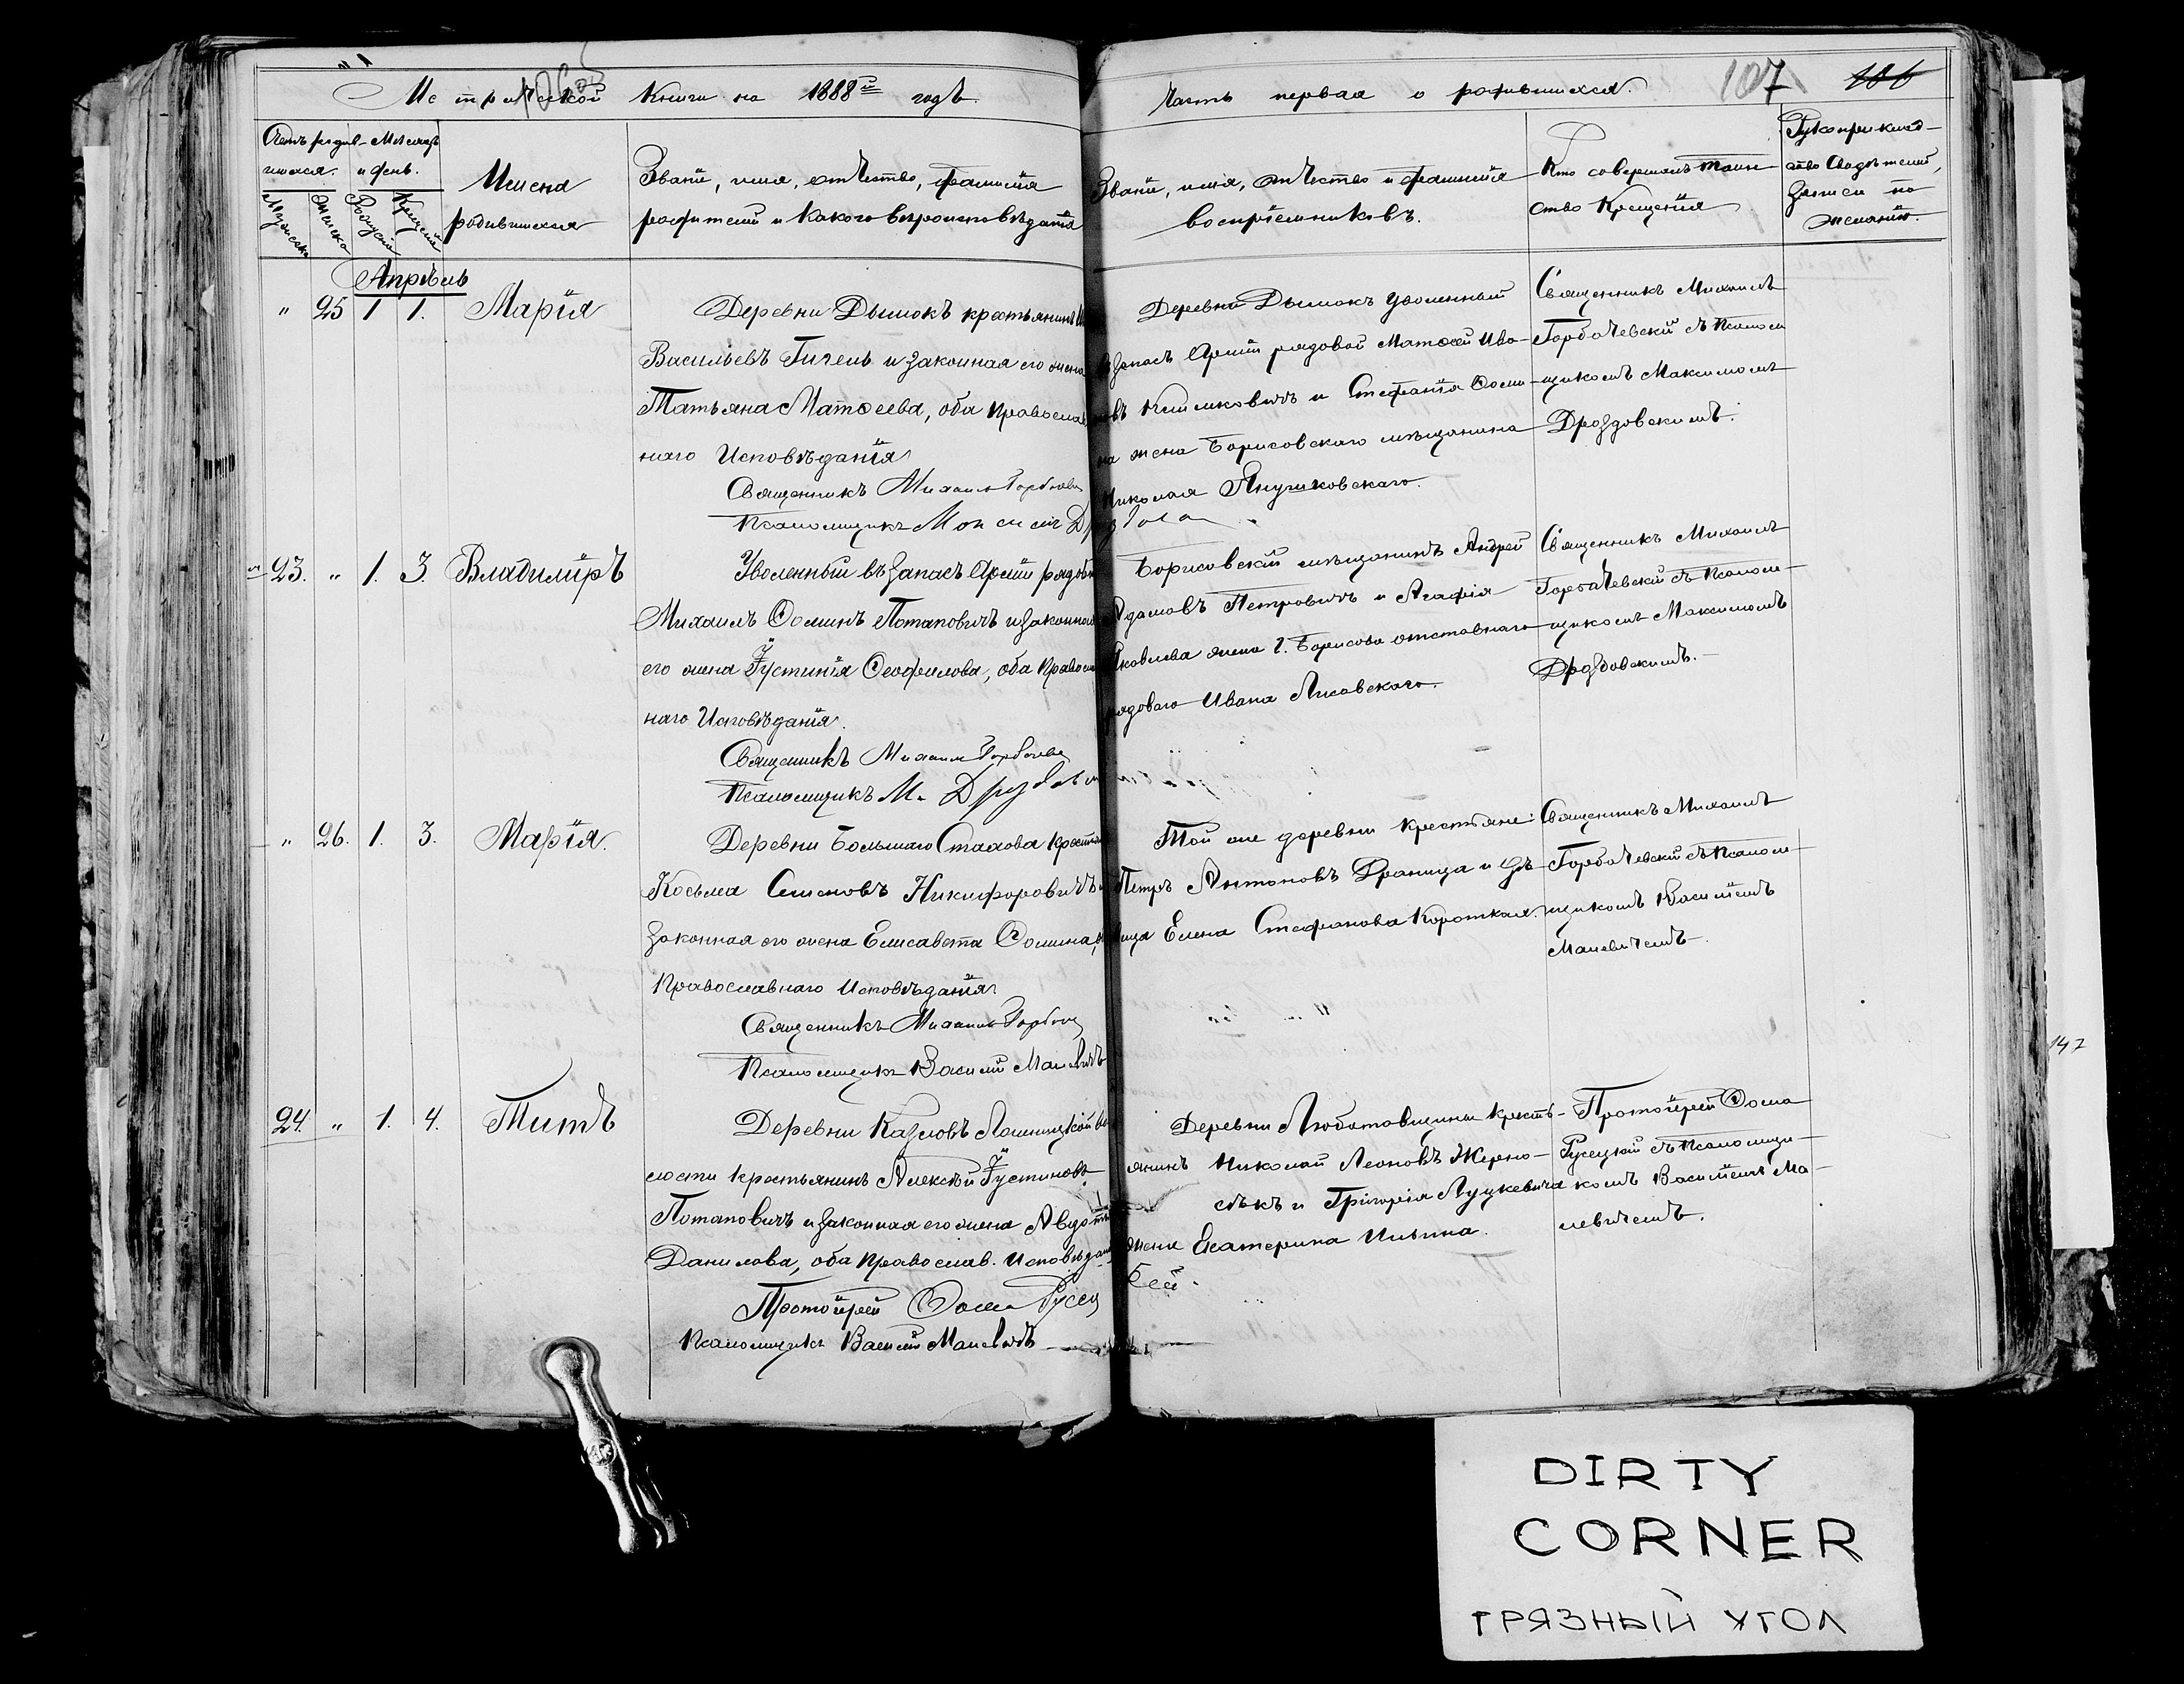 Метрической книги на 1888й годъ.
Часть первая о родившихся.
107
106
Счетъ родив-
шихся.
Мужеска
Женска
Мѣсяцъ
и день.
Рожденія
Крещенія
Имена
родившихся
Званіе, имя, отчество, фамилія
родителей и какого вѣроисповѣданія
Званіе, имя, отчество и фамилія
воспріемниковъ.
Кто совершалъ таин
ство крещенія
Рукоприклад-
ство свидѣтелей
записи по
желанію.
Апрѣль
" 25 1 1. Марія
Деревни Дымокъ крестьянинъ
Васильевъ Гигель и законная его жена
Татьяна Матѳеева, оба православ
наго Исповѣданія
Священникъ Михаилъ Горбачев
Псаломщикъ Максимъ
Деревни Дымокъ уволенный
въ запасъ Арміи рядовой Матѳей Ива-
новъ и Стефанія Ѳоми-
на жена Борисовскаго мѣщанина
Николая Янушковскаго.
Священникъ Михаилъ
Горбачевскій съ псалом
щикомъ Максимомъ
Дроздовскимъ.
23. " 1. 3. Владиміръ
Уволенный въ запасъ Арміи рядовой
Михаилъ Ѳоминъ Потаповичъ и законная
его жена Іустинія Ѳеофилова, оба православ
наго Исповѣданія.
Священникъ Михаилъ Горбачев
Псаломщикъ М. Дроздов
Борисовскій мѣщанинъ Андрей
Адамовъ Петровичъ и Агафія
Яковлева жена г. Борисова отставнаго
рядоваго Ивана Лисовскаго.
Священникъ Михаилъ
Горбачевскій съ псалом-
щикомъ Максимомъ
Дроздовскимъ.-
" 26. 1. 3. Марія.
Деревни Большаго Стахова крестьян
Козьма Семеновъ Никифоровичъ и
законная его жена Елисавета Ѳомина, оба
Православнаго Исповѣданія
Священникъ Михаилъ Горбач
Псаломщикъ Василій Малевичъ
Той же деревни крестьяне:
Петръ Антоновъ Драница и дѣ-
вица Елена Стефанова Короткая.
Священникъ Михаилъ
Горбачевскій съ псалом-
щикомъ Василіемъ
Малевичемъ-.
24. " 1. 4. Титъ
Деревни Казловъ Лошницкой во
лости крестьянинъ Алексѣй Іустиновъ
Потаповичъ и законная его жена Авдотья
Данилова, оба православ. Исповѣдан
Протоіерей Ѳома Русец
Псаломщикъ Василій Малевичъ
Деревни Любатовщины кресть-
янинъ Николай Леоновъ Жерно-
сѣкъ и Григорія Луцкевича
жена Екатерина Ильина.
Протоіерей Ѳома
Русецкій съ псаломщи-
комъ Василіемъ Ма-
левичемъ.
147
DIRTY
CORNER
ГРЯЗНЫЙ УГОЛ